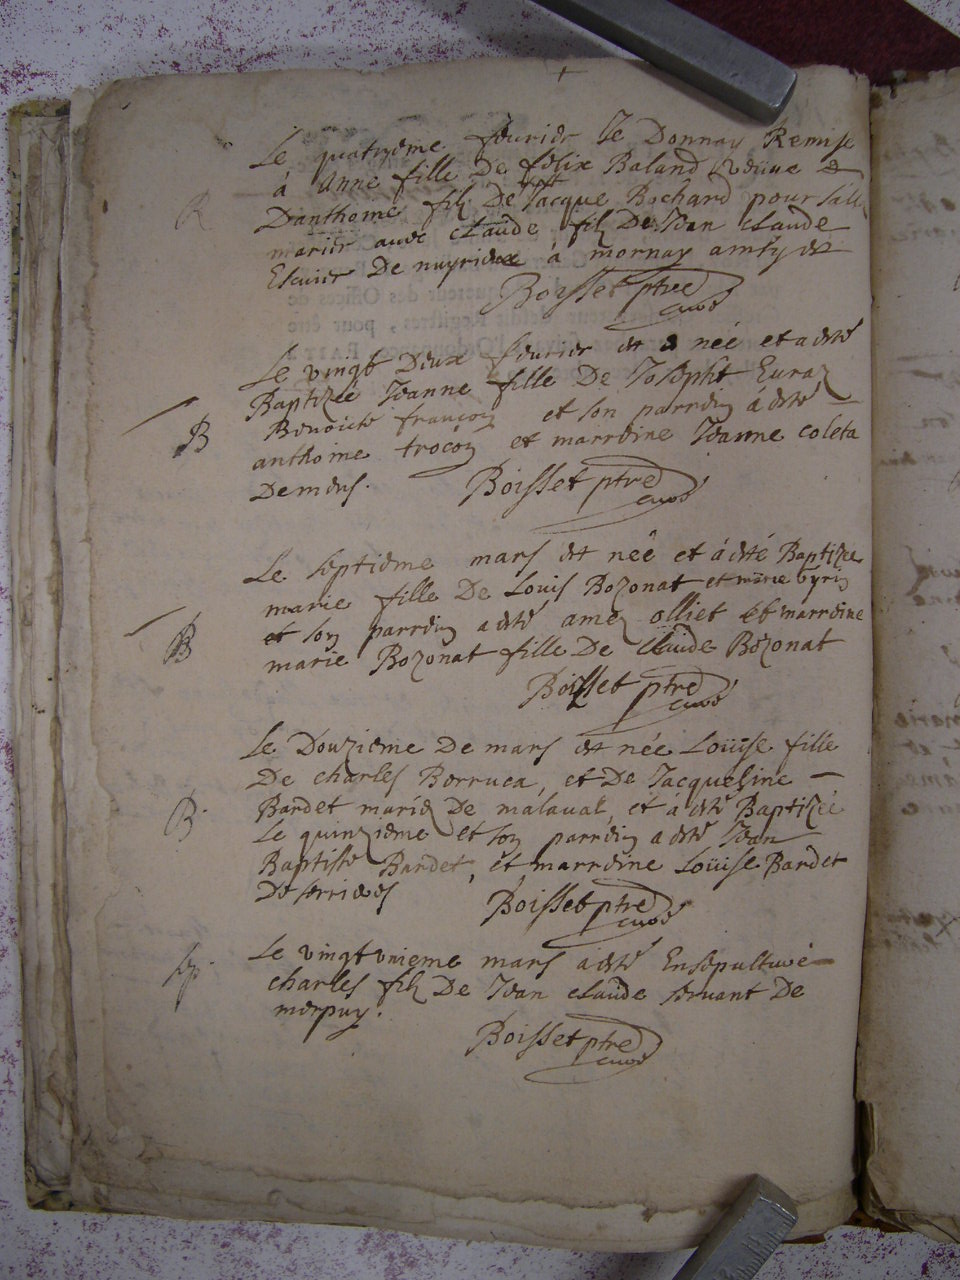 Le quatrieme feurier Je Donnay Remise
R
à Anne fille De felix Baland veuue
Danthoine filz De Jacque Bochard pour
marier auec claude filz De Jean claude
Escuier De à mornay
Boisset ptre curé
Le vingt Deux feurier est née et a esté
Baptizée Jeanne fille De Joseph
B
Benoicte françon et son parrein a esté
anthoine trocon et marreine Jeanne coleta
Demeus.
Boisset ptre curé
Le septieme mars est née et à esté Baptizée
marie fille De Louis Bozonat et marie
B
et son parrein a esté ame olliet et marreine
marie Bozonat fille De Claude Bozonat
Boisset ptre curé
Le Douzieme De mars est née Loüise fille
De charles Borruca, et De Jacqueline
B.
Bardet mariez De malaual, et à esté Baptizée
Le quinzieme et son parrein a esté Jean
Baptiste Bardet, et marreine Loüise Bardet
De serrieres
Boisset ptre curé
Sep.
Le vingt vnieme mars a esté Ensepulturé
charles filz De Jean claude seruant De
merpuy.
Boisset ptre curé